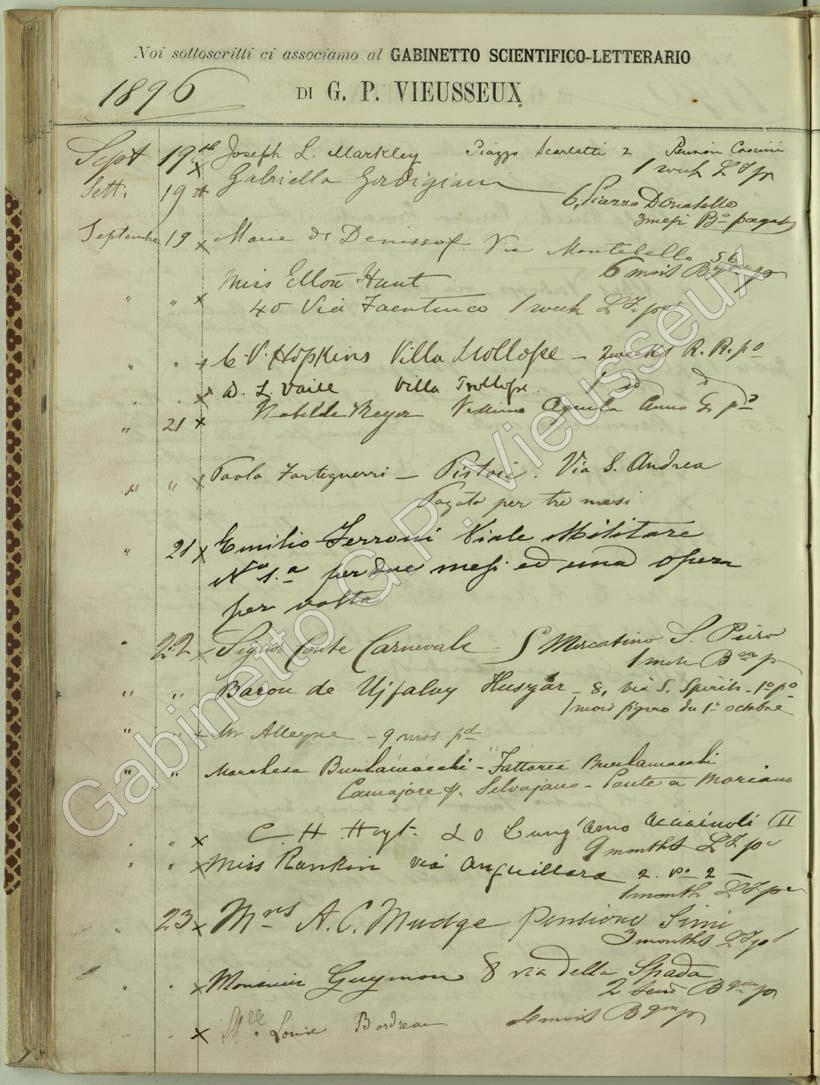 Noi sottoscritti ci associamo al GABINETTO SCIENTIFICO-LETTERARIO
1896 DI G. P. VIEUSSEUX
Sept 19th x Joseph L. Markley Piazza Scarlatti 2 Pension Casini
1 week
Sett. 19 Gabriella Gordigiani
6, Piazza Donatello
3 mesi
Septembre 19 x Marie de Denissof Via Montebello 56
6 mois
Miss Ellen Hunt
" " x 40 Via Faentina 1 week
" " x C V Hopkins Villa Trollope - 2 weeks R. R. po
x A. L. Vaill Villa Trollope. 1 do do
" 21 x Meyer Aquila Anno G. po
" " x Paola Forteguerri - Pistoia. Via S. Andrea
Pagato per tre mesi
" 21 x Emilio Ferroni Viale Militare
No 1.a per due mesi ed una opera
per volta
" 22 x Signor Conte Carnevale 5 Mercatino S. Piero
1 mese
" " Baron de Ujfalvy Huszár - 8, via S. Spirito - 1o po
1 mois du 1er octobre
" " x Mr Alleyne - 9 mos pd
" " Marchesa Burlamacchi - Fattoria Burlamacchi
Camajore Ponte a Moriano
" " x C. H. Hoyt. 20 Lung'Arno Acciaiuoli II
9 months
" " x Miss Rankin via Anguillara 2. po 2
1 month
23 x Mrs A. C. Mudge Pensione Simi
3 months
" " x Monsieur Guymon 8 via della Spada
2
x Mlle. Louise Bordreau mois
Gabinetto G.P. Vieusseux